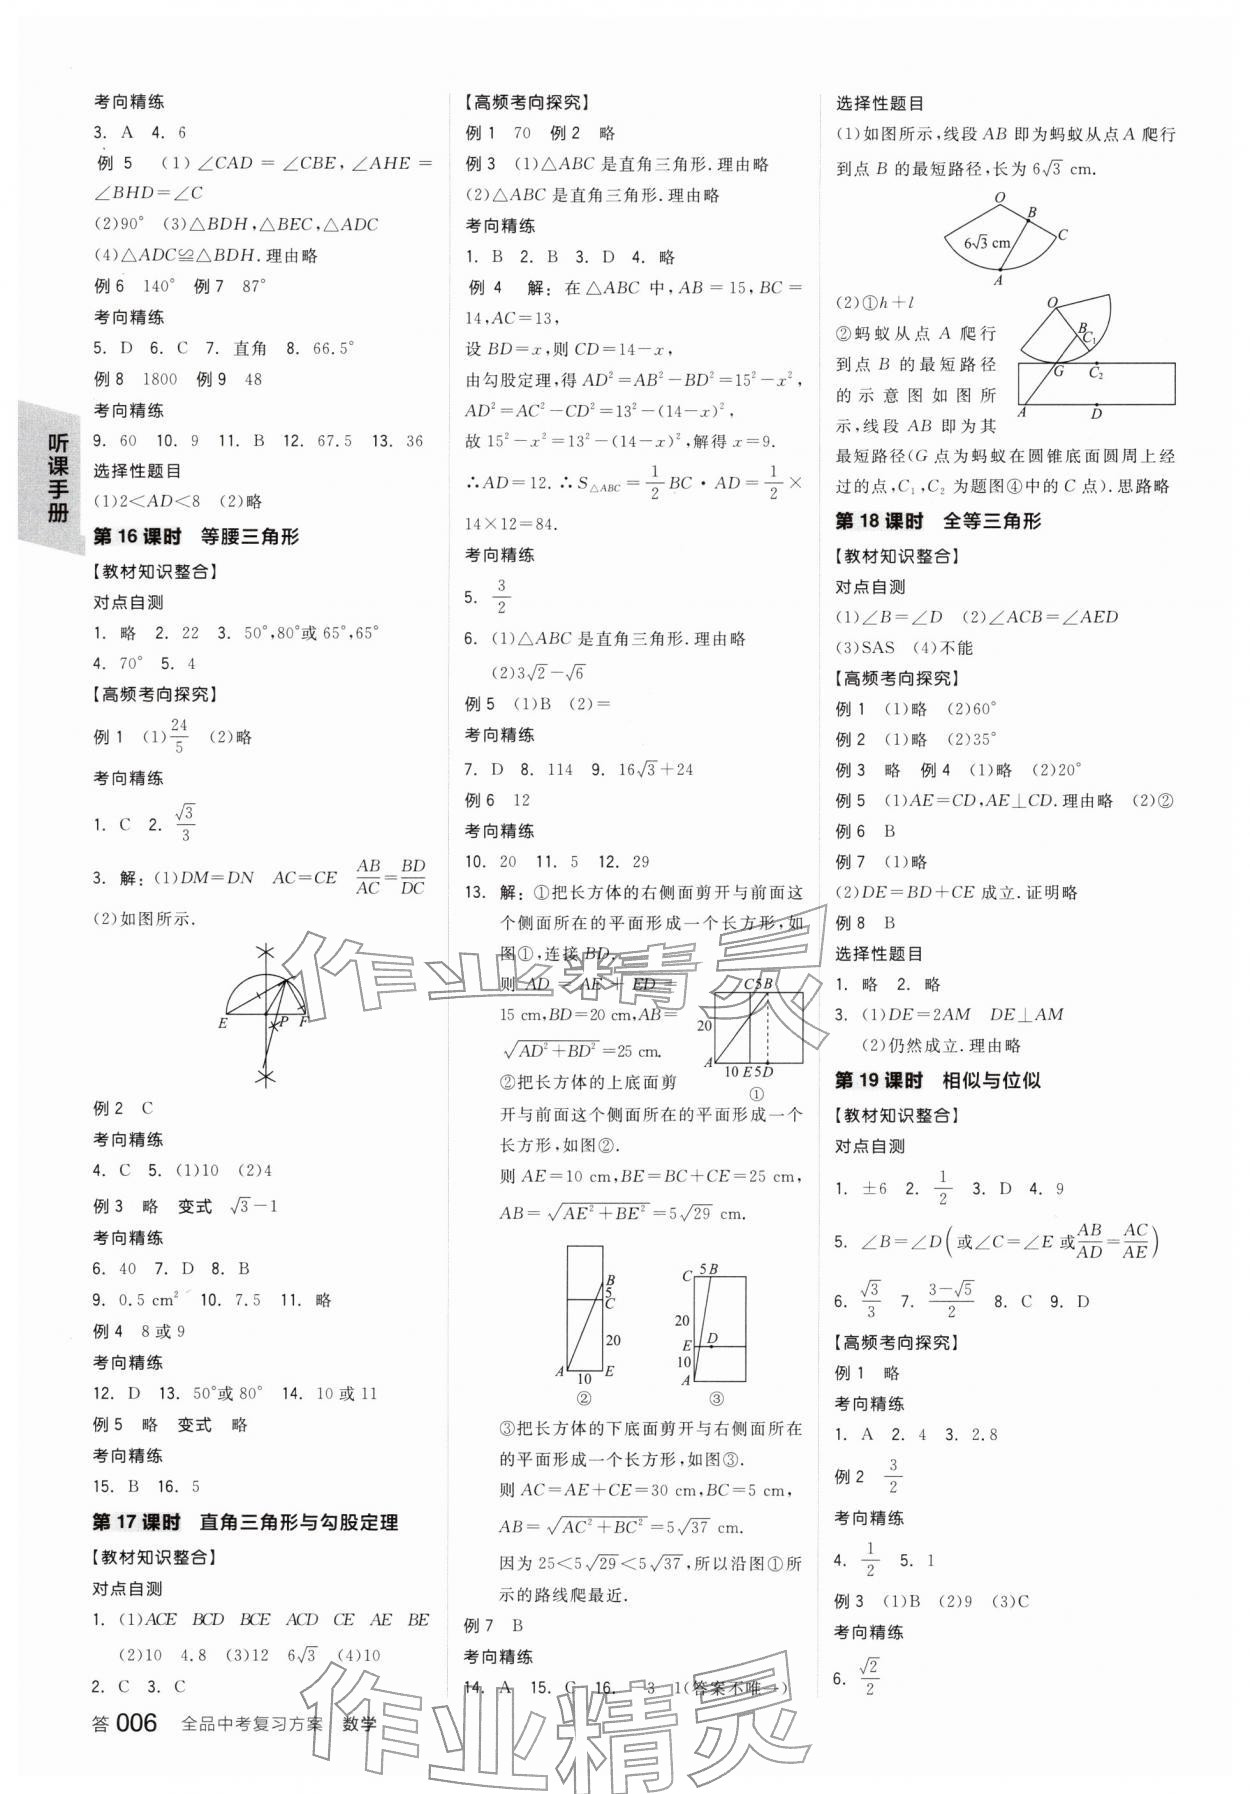 听课手册
考向精练
3. A 4. 6
例 5 (1)∠CAD=∠CBE,∠AHE=
∠BHD=∠C
(2)90° (3)△BDH,△BEC,△ADC
(4)△ADC≌△BDH.理由略
例 6 140° 例 7 87°
考向精练
5. D 6. C 7. 直角 8. 66.5°
例 8 1800 例 9 48
考向精练
9. 60 10. 9 11. B 12. 67.5 13. 36
选择性题目
(1)2<AD<8 (2)略
第 16 课时 等腰三角形
【教材知识整合】
对点自测
1. 略 2. 22 3. 50°,80°或 65°,65°
4. 70° 5. 4
【高频考向探究】
例 1 (1)24/5 (2)略
考向精练
1. C 2. √3/3
3. 解:(1)DM=DN AC=CE AB/AC=BD/DC
(2)如图所示.
E P F
例 2 C
考向精练
4. C 5. (1)10 (2)4
例 3 略 变式 √3-1
考向精练
6. 40 7. D 8. B
9. 0.5 cm² 10. 7.5 11. 略
例 4 8 或 9
考向精练
12. D 13. 50°或 80° 14. 10 或 11
例 5 略 变式 略
考向精练
15. B 16. 5
第 17 课时 直角三角形与勾股定理
【教材知识整合】
对点自测
1. (1)ACE BCD BCE ACD CE AE BE
(2)10 4.8 (3)12 6√3 (4)10
2. C 3. C
【高频考向探究】
例 1 70 例 2 略
例 3 (1)△ABC 是直角三角形.理由略
(2)△ABC 是直角三角形.理由略
考向精练
1. B 2. B 3. D 4. 略
例 4 解:在△ABC 中,AB=15,BC=
14,AC=13,
设 BD=x,则 CD=14-x,
由勾股定理,得 AD²=AB²-BD²=15²-x²,
AD²=AC²-CD²=13²-(14-x)²,
故 15²-x²=13²-(14-x)²,解得 x=9.
∴AD=12.∴S△ABC=1/2BC·AD=1/2×
14×12=84.
考向精练
5. 3/2
6. (1)△ABC 是直角三角形.理由略
(2)3√2-√6
例 5 (1)B (2)=
考向精练
7. D 8. 114 9. 16√3+24
例 6 12
考向精练
10. 20 11. 5 12. 29
13. 解:①把长方体的右侧面剪开与前面这
个侧面所在的平面形成一个长方形,如
图①,连接 BD.
则 AD = AE + ED =
15 cm,BD=20 cm,AB=
√(AD²+BD²)=25 cm.
C5B
20
A
10 E5D
①
②把长方体的上底面剪
开与前面这个侧面所在的平面形成一个
长方形,如图②.
则 AE=10 cm,BE=BC+CE=25 cm,
AB=√(AE²+BE²)=5√29 cm.
B
5
C
20
A
10
E
②
C 5 B
20
E D
10
A
③
③把长方体的下底面剪开与右侧面所在
的平面形成一个长方形,如图③.
则 AC=AE+CE=30 cm,BC=5 cm,
AB=√(AC²+BC²)=5√37 cm.
因为 25<5√29<5√37,所以沿图①所
示的路线爬最近.
例 7 B
考向精练
14. A 15. C 16. 3 1(答案不唯一)
选择性题目
(1)如图所示,线段 AB 即为蚂蚁从点 A 爬行
到点 B 的最短路径,长为 6√3 cm.
O
B
C
6√3 cm
A
(2)①h+l
②蚂蚁从点 A 爬行
到点 B 的最短路径
的示意图如图所
示,线段 AB 即为其
O
B
C₁
G C₂
A D
最短路径(G 点为蚂蚁在圆锥底面圆周上经
过的点,C₁,C₂ 为题图④中的 C 点).思路略
第 18 课时 全等三角形
【教材知识整合】
对点自测
(1)∠B=∠D (2)∠ACB=∠AED
(3)SAS (4)不能
【高频考向探究】
例 1 (1)略 (2)60°
例 2 (1)略 (2)35°
例 3 略 例 4 (1)略 (2)20°
例 5 (1)AE=CD,AE⊥CD.理由略 (2)②
例 6 B
例 7 (1)略
(2)DE=BD+CE 成立.证明略
例 8 B
选择性题目
1. 略 2. 略
3. (1)DE=2AM DE⊥AM
(2)仍然成立.理由略
第 19 课时 相似与位似
【教材知识整合】
对点自测
1. ±6 2. 1/2 3. D 4. 9
5. ∠B=∠D(或∠C=∠E 或AB/AD=AC/AE)
6. √3/3 7. (3-√5)/2 8. C 9. D
【高频考向探究】
例 1 略
考向精练
1. A 2. 4 3. 2.8
例 2 3/2
考向精练
4. 1/2 5. 1
例 3 (1)B (2)9 (3)C
考向精练
6. √2/2
答 006 全品中考复习方案 数学
作业精灵
作业精灵